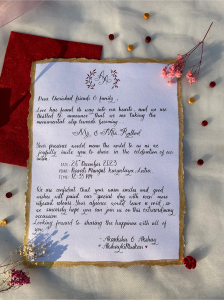 Dear Cherished friends & family,
Love has found its way into our hearts, and we are
thrilled to announce that we are taking the
monumental step towards becoming
Mr. & Mrs. Rathod
Your presence would mean the world to us as we
joyfully invite you to share in the celebration of our
DATE: 26th December 2023
TIME: 12:35 PM
We are confident that your warm smiles and good
wishes will make our special day with even more
we sincerely hope you can join us on this extraordinary
occasion.
Looking forward to sharing the happiness with all of
you.
- Akanksha & Akshay